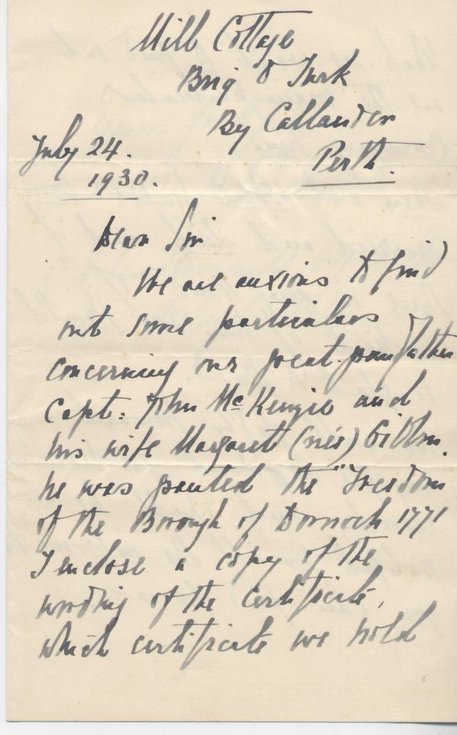 Mill Cottage
Brig O Turk
By Callander
Perth.
July 24.
1930.
Dear Sir
We are anxious to find
out some particulars
concerning our great-grandfather
Capt: John McKenzie and
his wife Margaret (née)
he was granted the "Freedom
of the Borough of Dornoch 1771
I enclose a copy of the
wording of the certificate,
which certificate we hold